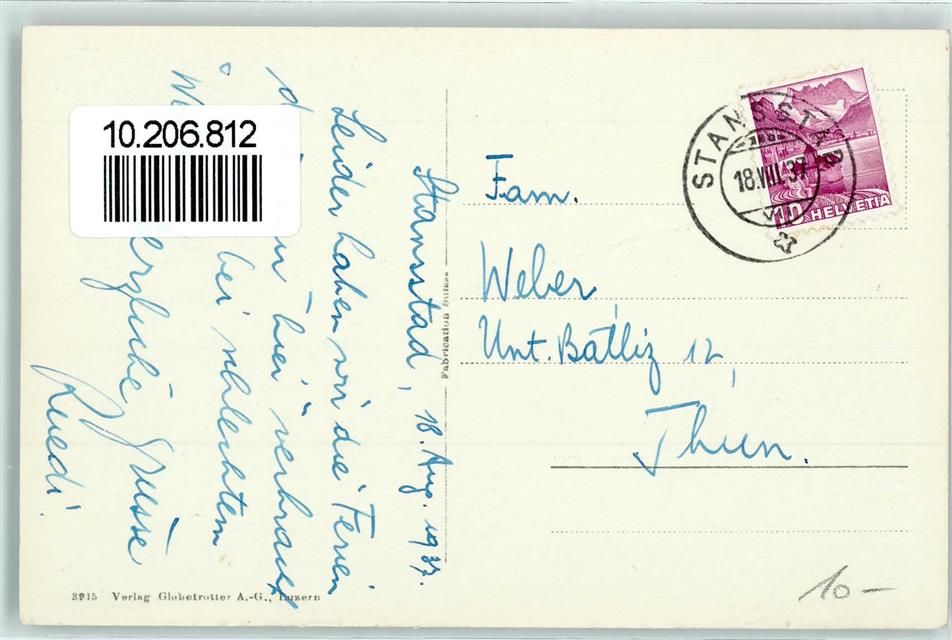 Stansstad, 18. Aug. 1937.
Leider haben wir die Ferien
hier verbracht
bei schlechtem
Herzliche Grüsse
Ruedi!
10.206.812
Fam.
Weber,
Unt. Bälliz 12,
Thun.
STANSSTAD
18.VIII.37
VII
10 HELVETIA
Fabrication Suisse
3915 Verlag Globetrotter A.-G., Luzern
10.-